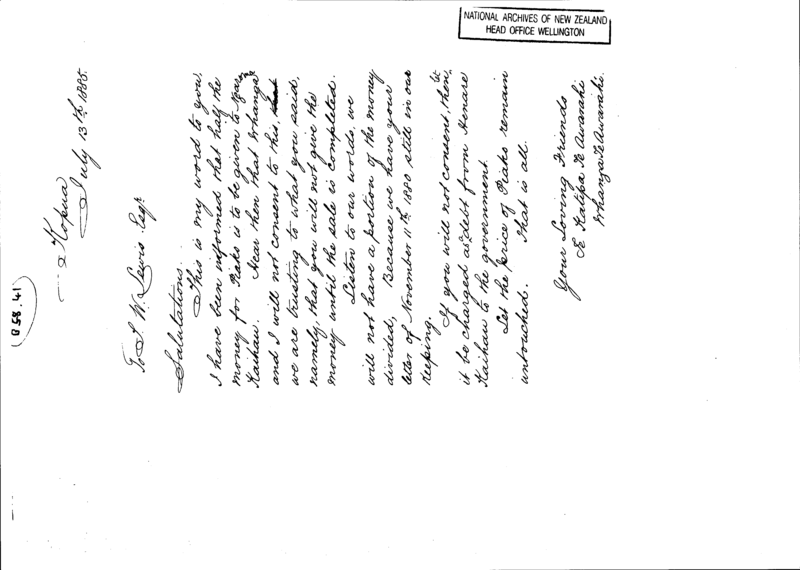 NATIONAL ARCHIVES OF NEW ZEALAND
HEAD OFFICE WELLINGTON
Kopua
July 13th 1885.
To T. W. Lewis Esqr
Salutations.
This is my word to you.
I have been informed that half the
money for Piako is to be given to
Kaihau. Hear then that Whanga
and I will not consent to this,
we are trusting to what you said,
namely, that you will not give the
money until the sale is completed.
Listen to our words, we
will not have a portion of the money
divided, Because we have your
letter of November 11th 1880 still in our
keeping.
If you will not consent, then let
it be charged as debt from Henare
Kaihau to the government.
Let the price of Piako remain
untouched. That is all.
Your Loving Friends
E Katipa Te Awarahi
Whanga Te Awarahi.